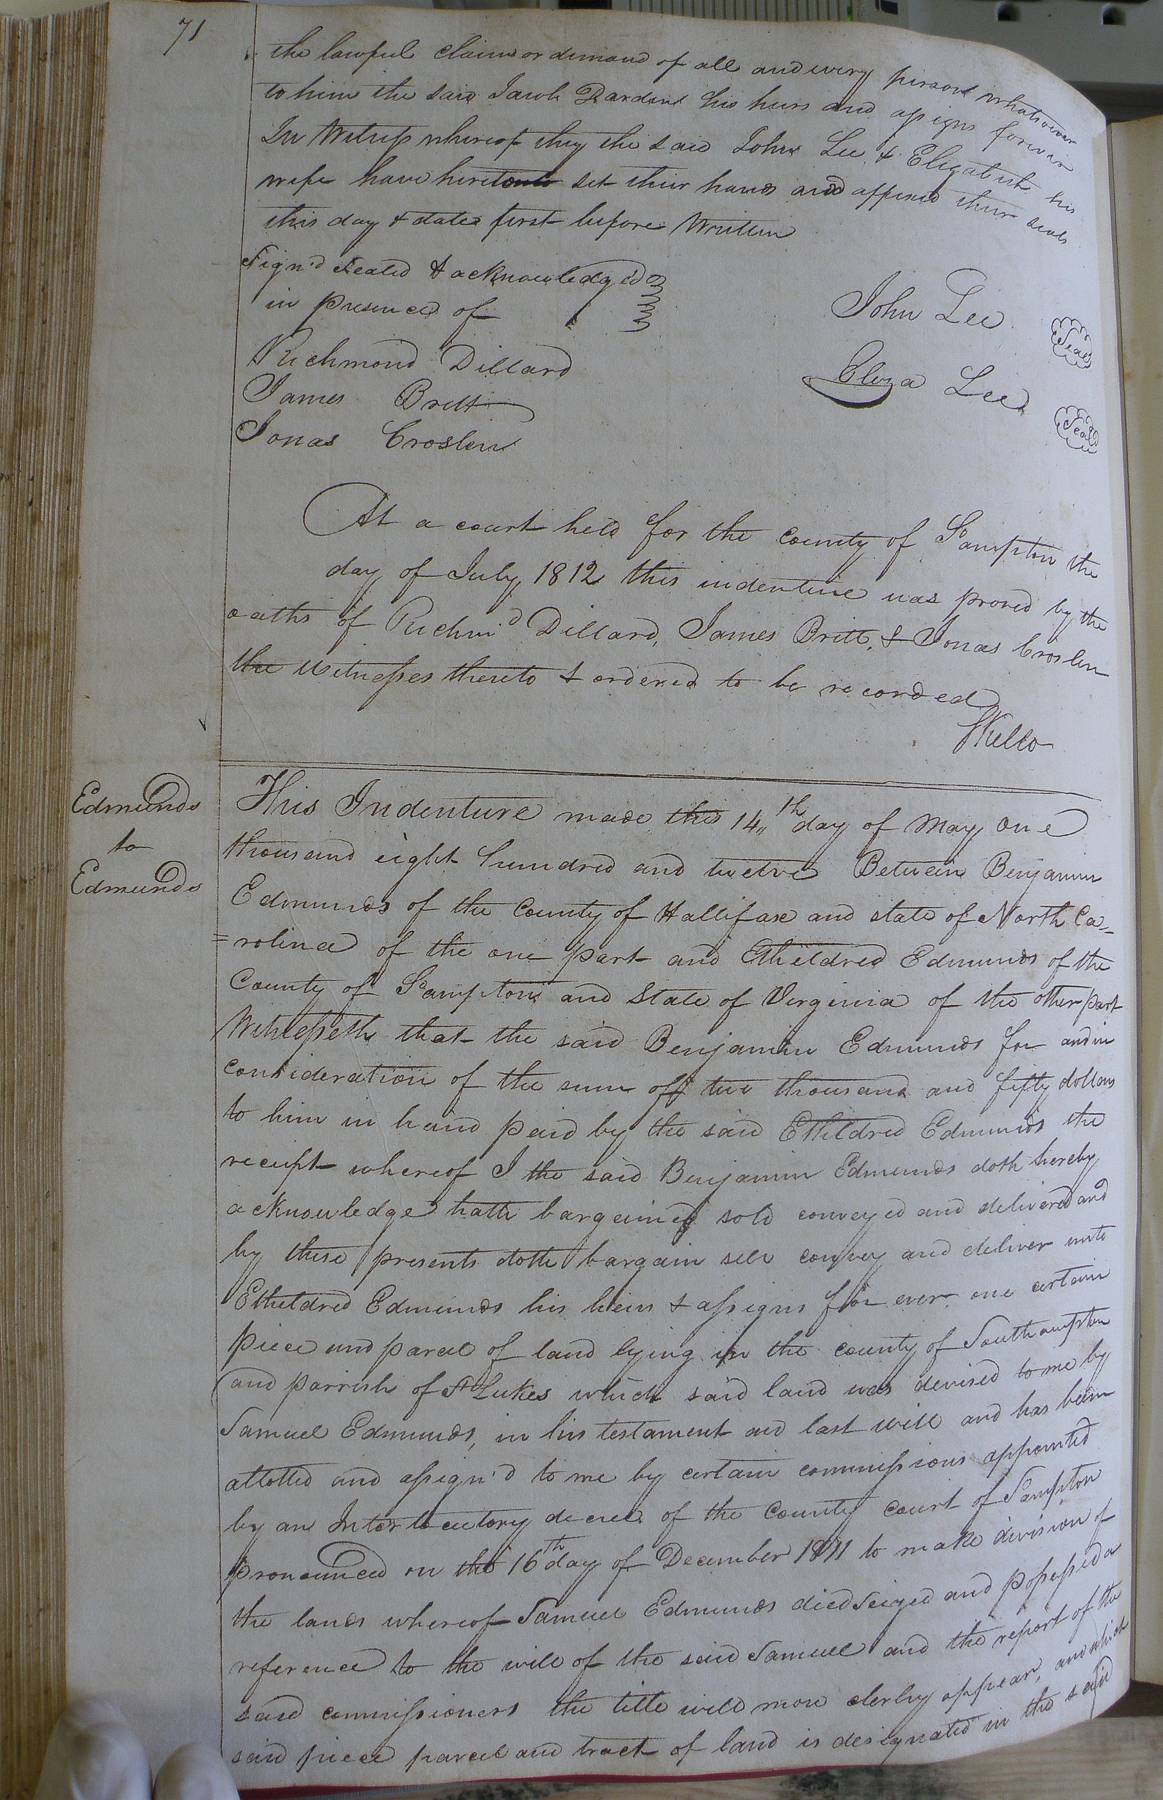 71
the lawful claim or demand of all and every person whatsoever
to him the said Jacob Darden his heirs and assigns forever
In Witness whereof they the said John Lee & Elizabeth his
wife have hereunto set their hands and affixed their seals
this day & date first before Written
Sign'd Sealed & acknowledged
in presence of
John Lee
Seal
Richmond Dillard
Eliza Lee
Seal
James Britt
Jonas Croslin
At a court held for the county of Sampton the
day of July 1812 this indenture was proved by the
oaths of Richm'd Dillard, James Britt, & Jonas Croslin
the witnesses thereto & ordered to be recorded
SKello
Edmunds
to
Edmunds
This Indenture made this 14th day of May one
thousand eight hundred and twelve Between Benjamin
Edmunds of the County of Hallifax and state of North Ca-
=rolina of the one part and Etheldred Edmunds of the
County of Sampton and State of Virginia of the other part
Witnesseth that the said Benjamin Edmunds for and in
consideration of the sum off two thousand and fifty dollars
to him in hand paid by the said Etheldred Edmunds the
receipt whereof I the said Benjamin Edmunds doth hereby
acknowledge hath bargained sold conveyed and delivered and
by these presents doth bargain sell convey and deliver unto
Etheldred Edmunds his heirs & assigns for ever one certain
piece and parcel of land lying in the county of Southampton
and parrish of St Lukes which said land was devised to me by
Samuel Edmunds, in his testament and last will and has been
attotted and assign'd to me by certain commissions appointed
by an Interlocutory decree of the County Court of Sampton
pronounced on the 16th day of December 1811 to make division of
the lands whereof Samuel Edmunds died seized and possessed a
reference to the will of the said Samuel and the report of the
said commissioners the title will more clerly appear, and which
said piece parcel and tract of land is designated in the said